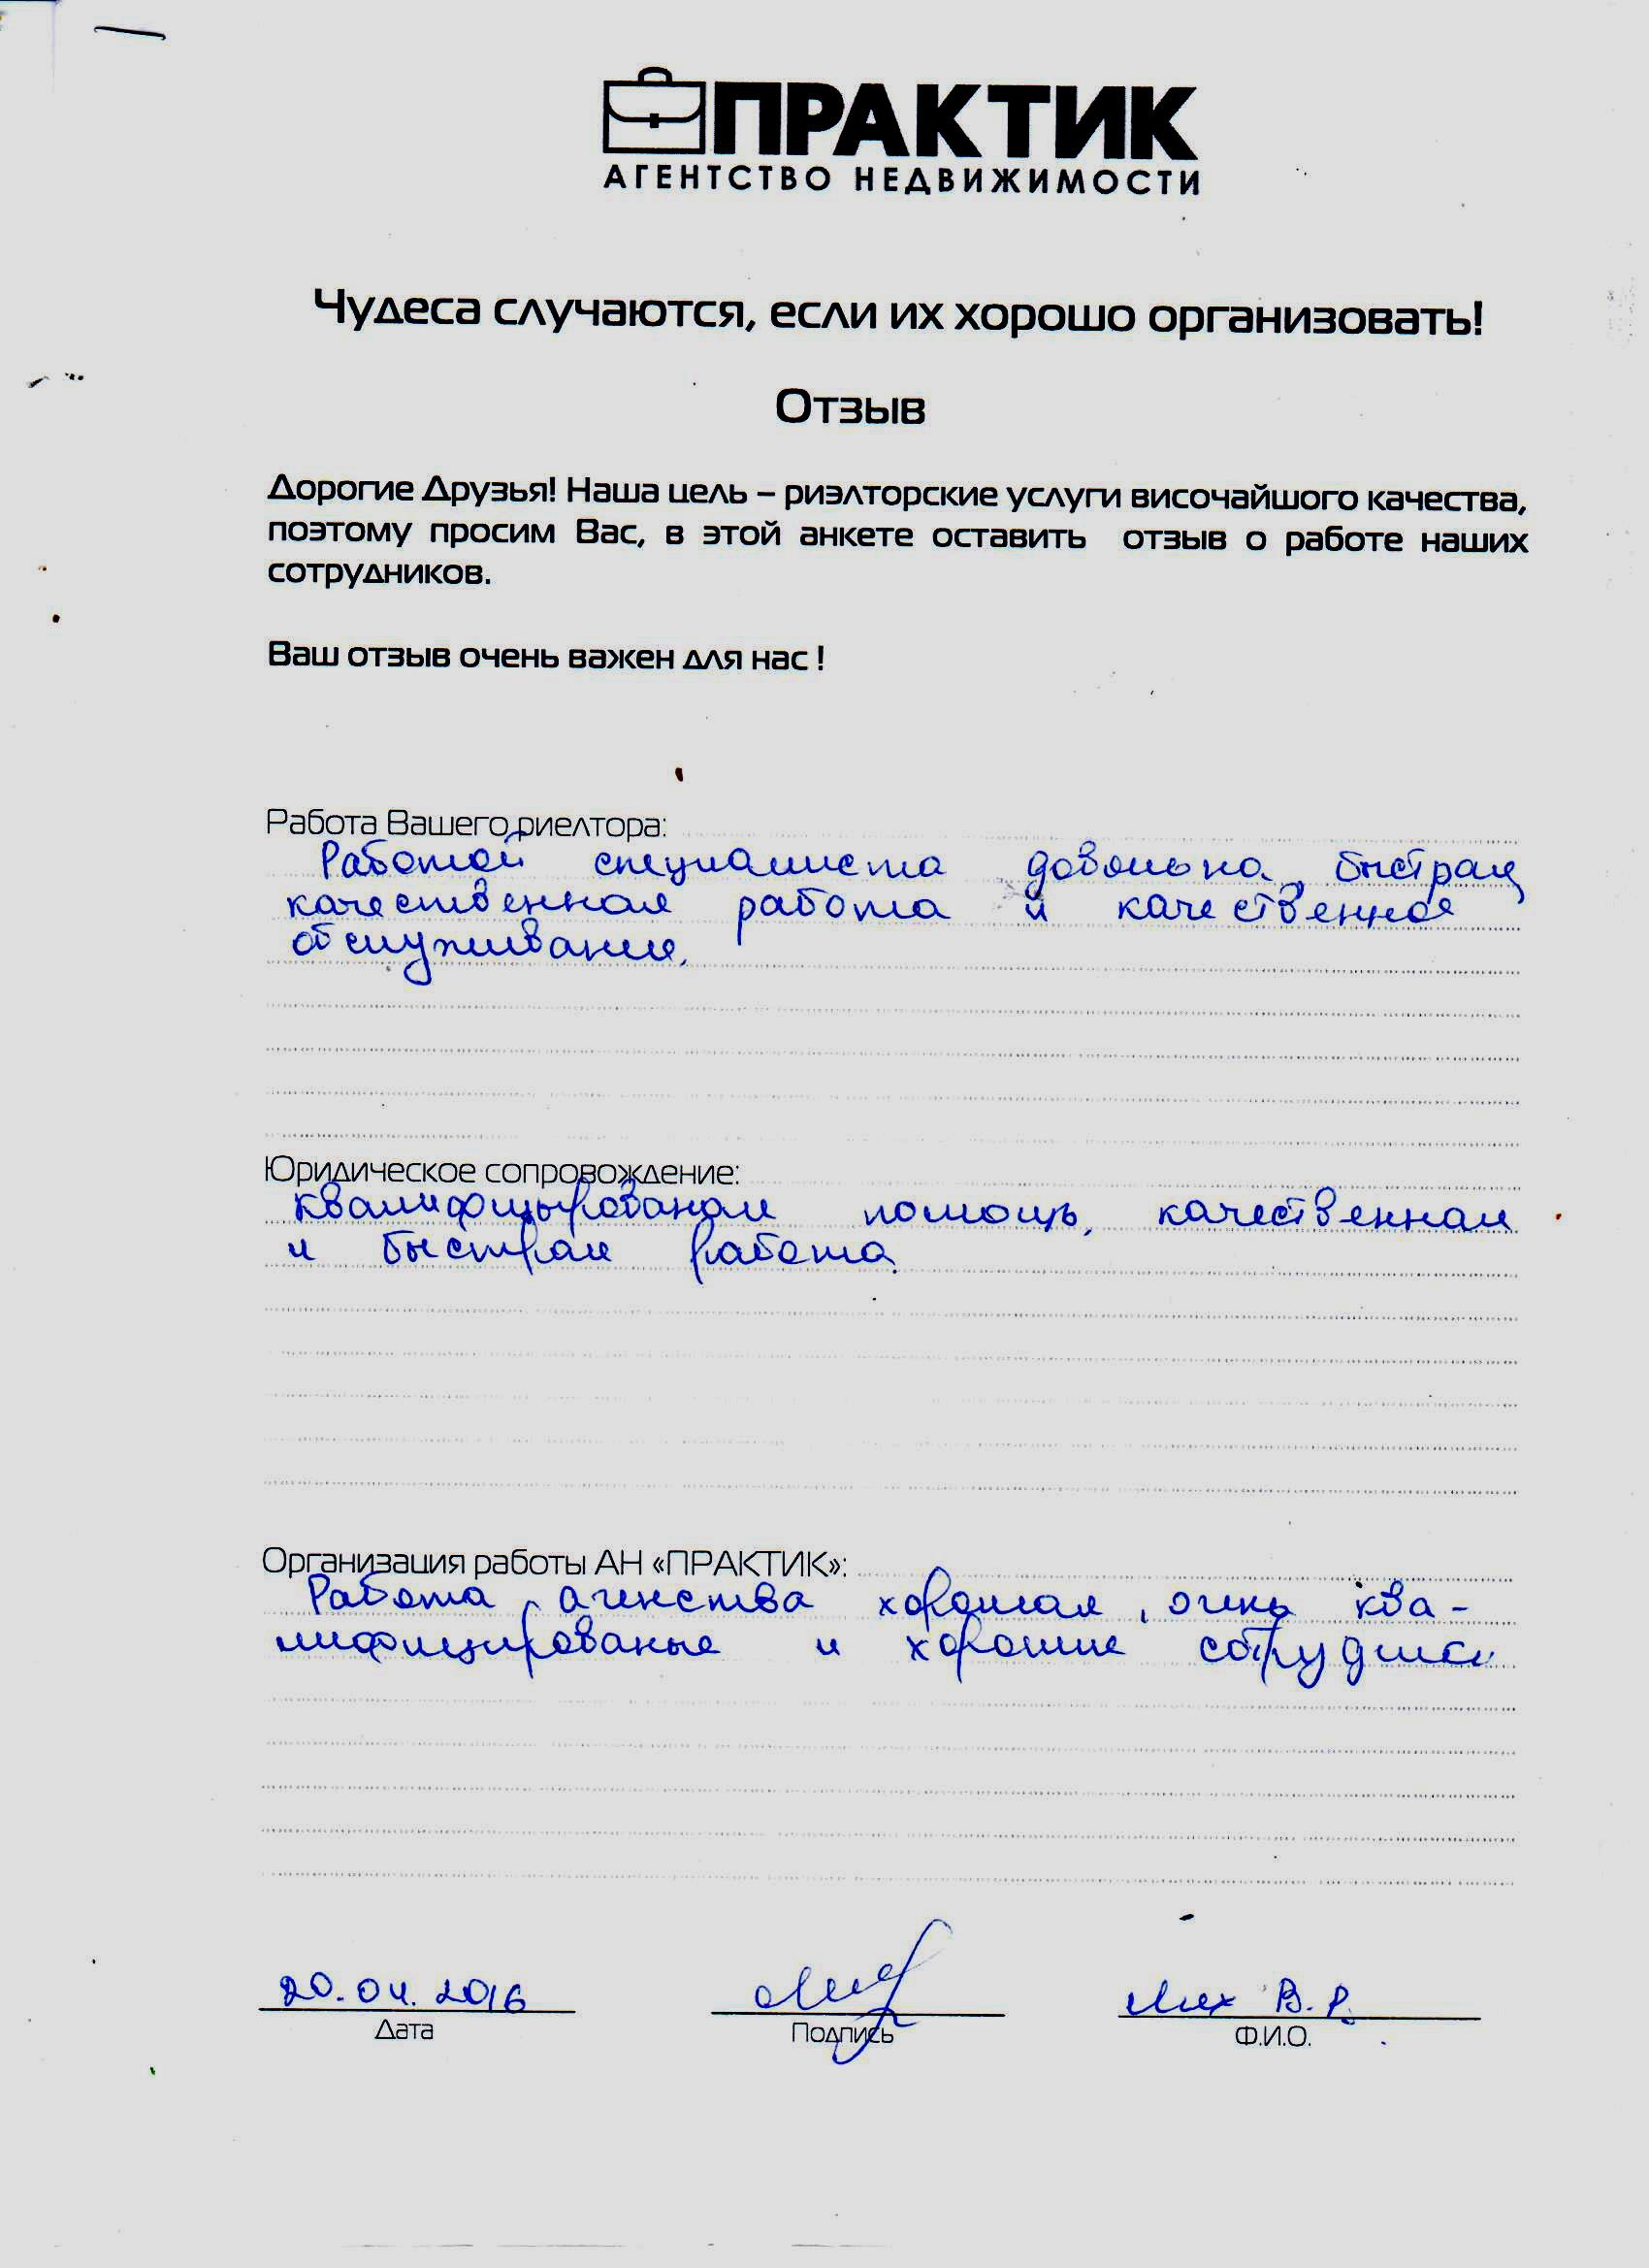 ПРАКТИК
АГЕНТСТВО НЕДВИЖИМОСТИ
Чудеса случаются, если их хорошо организовать!
Отзыв
Дорогие Друзья! Наша цель – риэлторские услуги височайшого качества,
поэтому просим Вас, в этой анкете оставить отзыв о работе наших
сотрудников.
Ваш отзыв очень важен для нас !
Работа Вашего риелтора:
Работой специалиста довольна, быстрая,
качественная работа и качественное
обслуживание.
Юридическое сопровождение:
квалифицырованая помощь, качественная
и быстрая работа.
Организация работы АН «ПРАКТИК»:
Работа агенства хорошая, очень ква-
лифицированые и хорошие
20.04.2016 В. Р.
Дата Подпись Ф.И.О.